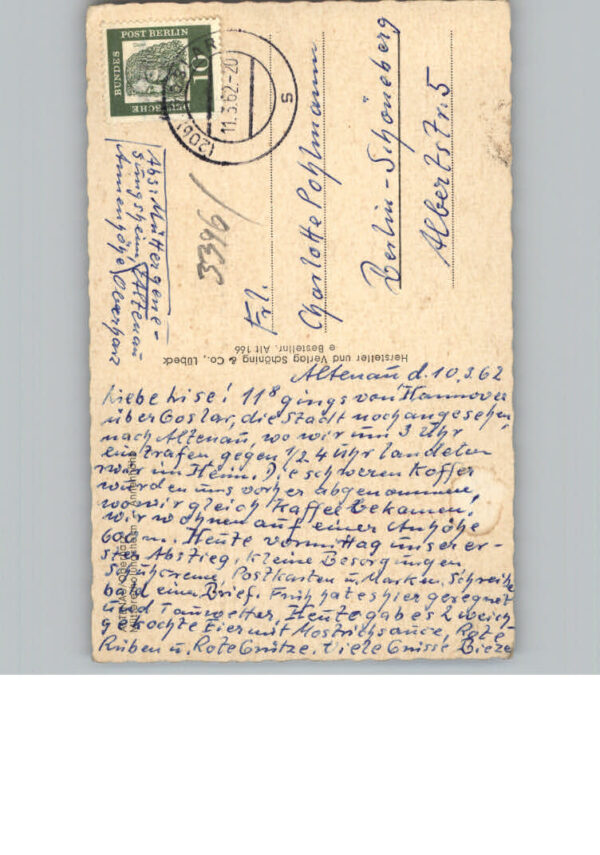 POST BERLIN
BUNDES
Dürer
10
DEUTSCHE
11.3.62.-20
s
Abs: Müttergene-
sungsheim, Altenau
Annenhöhe Oberharz
3396/
Frl.
Charlotte Pohlmann
Berlin-Schöneberg
Albertstr. 5
Hersteller und Verlag Schöning & Co., Lübeck
Bestellnr. Alt 166
Altenau d. 10.3.62
Liebe Lise! 11 8 gings von Hannover
über Goslar, die Stadt noch angesehen,
nach Altenau, wo wir um 3 Uhr
eintrafen, gegen 1/2 4 Uhr landeten
wir im Heim. Die schweren Koffer
wurden uns vorher abgenommen,
wo wir gleich Kaffee bekamen!
Wir wohnen auf einer Anhöhe
600 m. Heute vormittag unser er-
ster Abstieg, kleine Besorgungen
Postkarten u. Marken. Schreibe
bald einen Brief. Früh hat es hier geregnet
und Tauwetter. Heute gab es 2 weich
gekochte Eier mit Mostrichsauce, Rote
Rüben u. Rote Grütze. Viele Grüsse